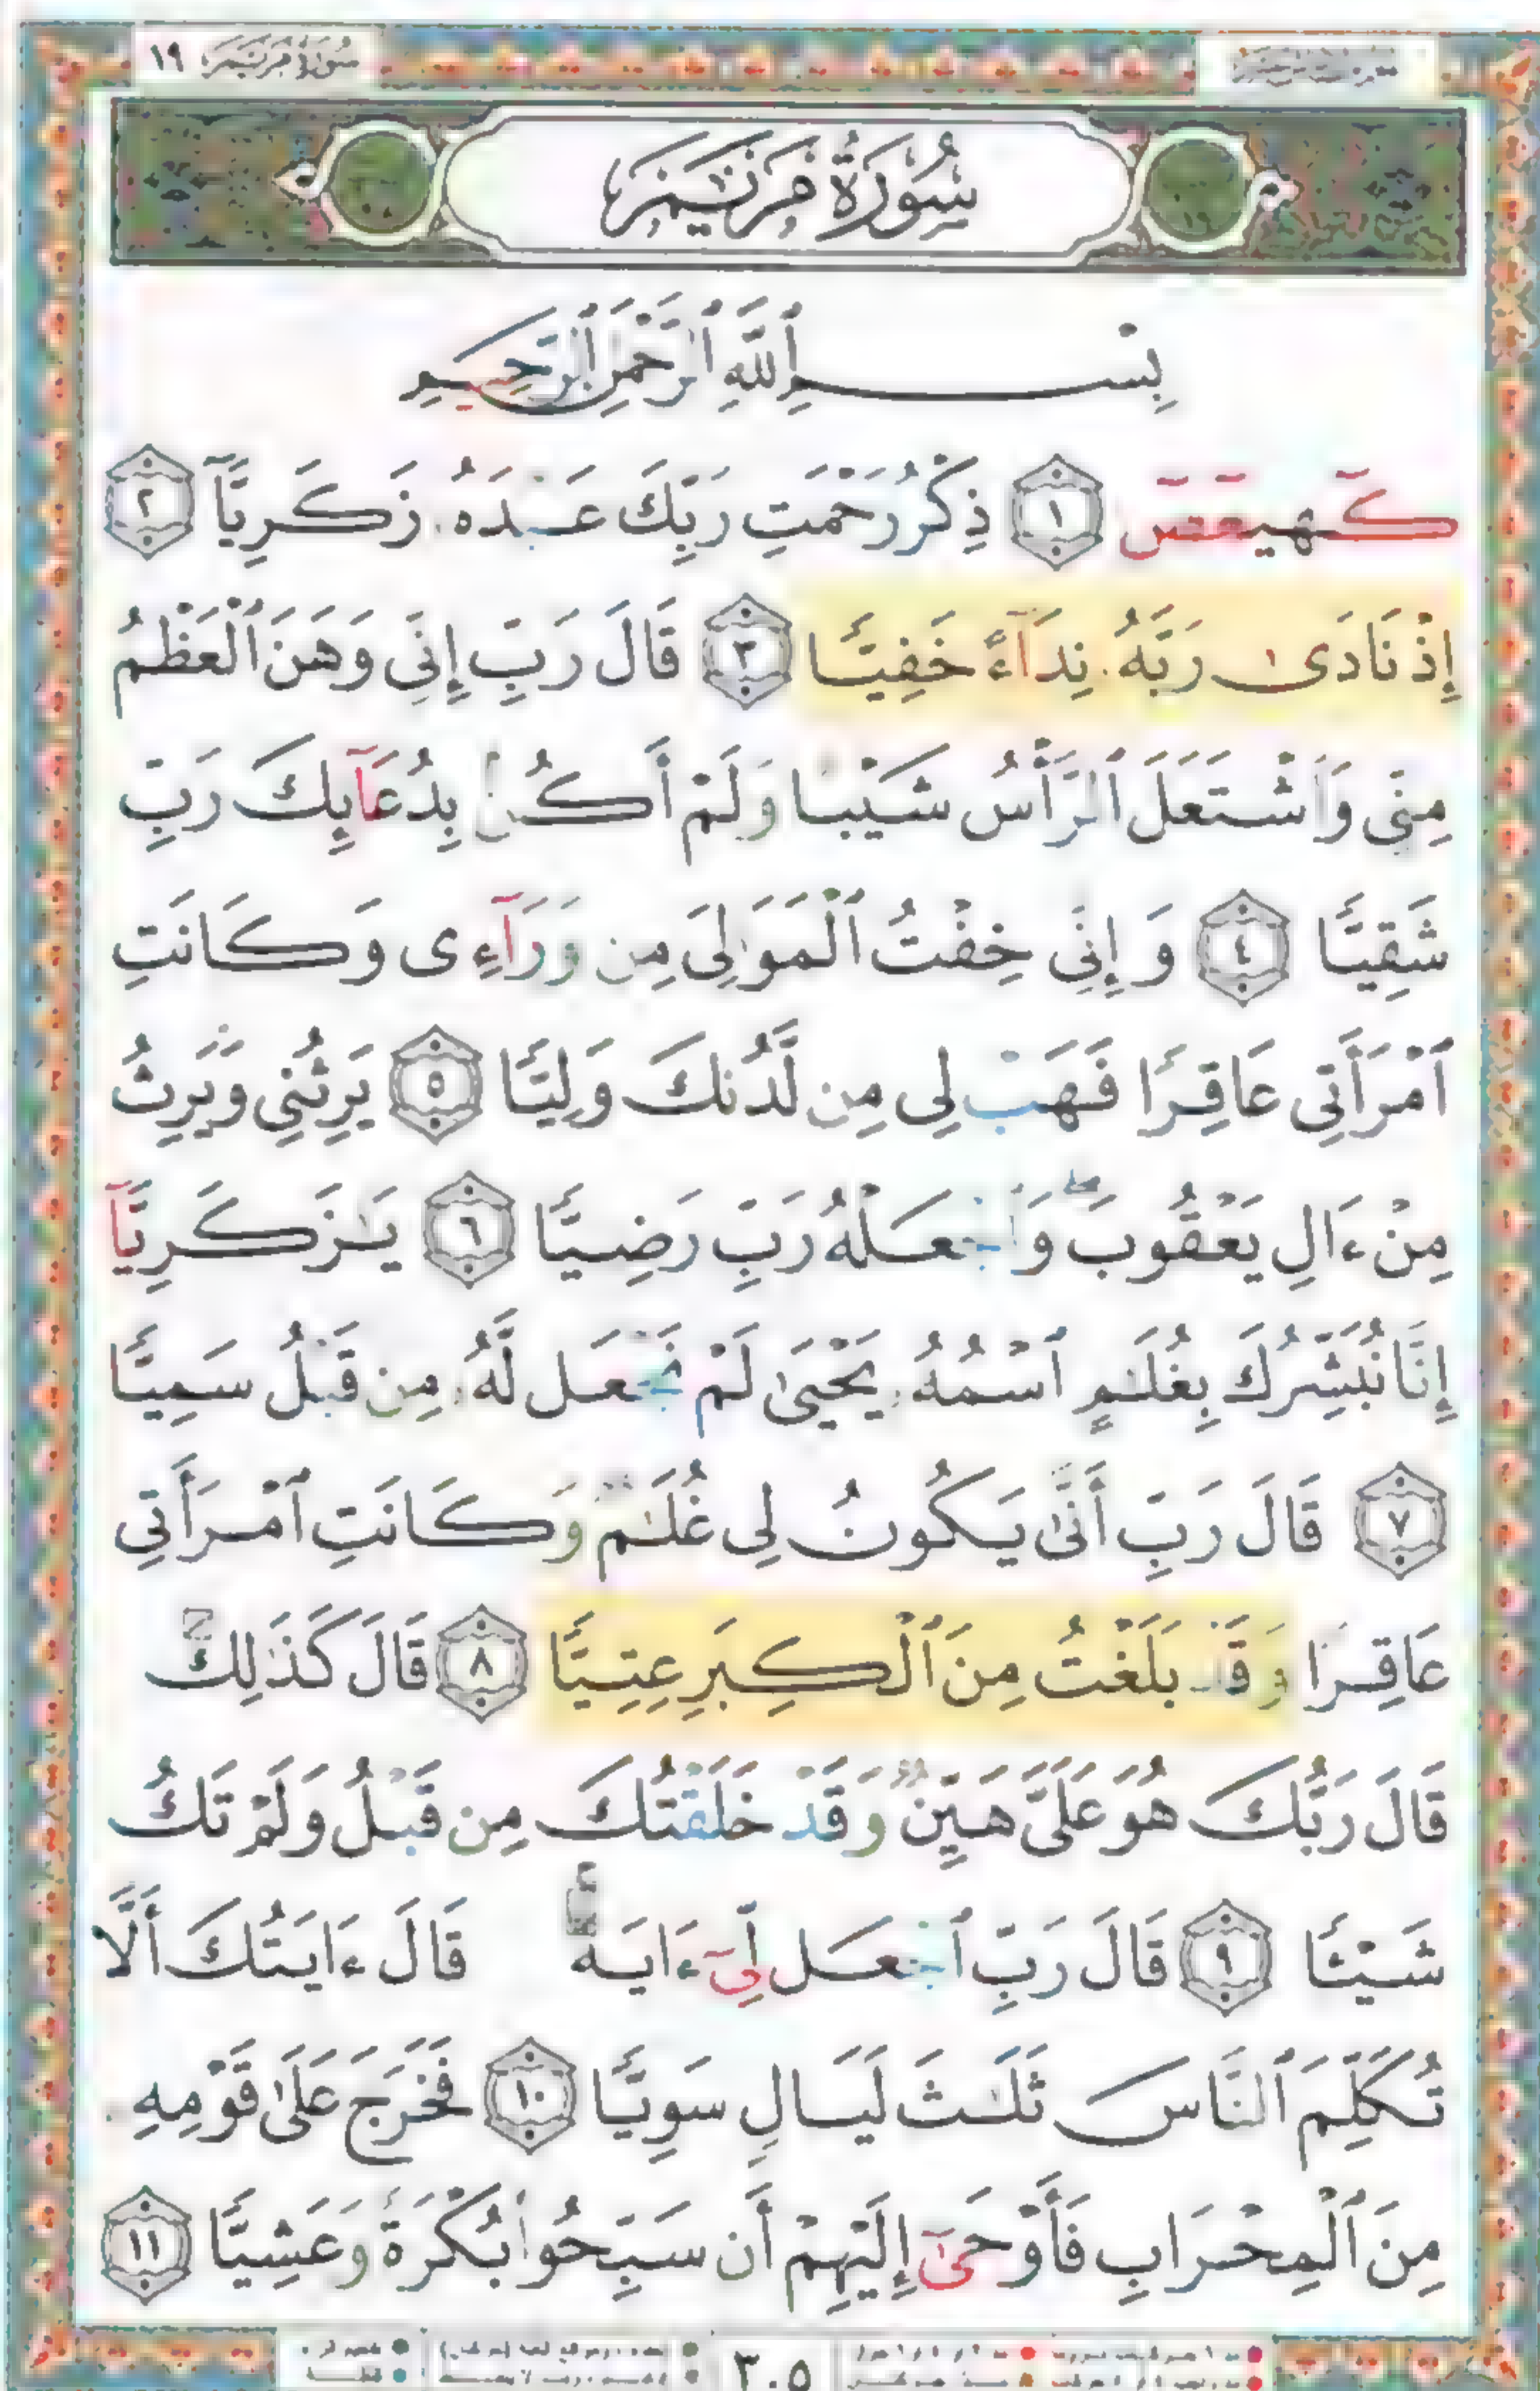 سُورَةُ مَرْيَمَ ١٩
سُورَةُ مَرْيَمَ
بِسْمِ ٱللَّهِ ٱلرَّحْمَٰنِ ٱلرَّحِيمِ
كٓهيعٓصٓ ١ ذِكْرُ رَحْمَتِ رَبِّكَ عَبْدَهُۥ زَكَرِيَّآ ٢
إِذْ نَادَىٰ رَبَّهُۥ نِدَآءً خَفِيًّا ٣ قَالَ رَبِّ إِنِّى وَهَنَ ٱلْعَظْمُ
مِنِّى وَٱشْتَعَلَ ٱلرَّأْسُ شَيْبًا وَلَمْ أَكُنۢ بِدُعَآئِكَ رَبِّ
شَقِيًّا ٤ وَإِنِّى خِفْتُ ٱلْمَوَٰلِىَ مِن وَرَآءِى وَكَانَتِ
ٱمْرَأَتِى عَاقِرًا فَهَبْ لِى مِن لَّدُنكَ وَلِيًّا ٥ يَرِثُنِى وَيَرِثُ
مِنْ ءَالِ يَعْقُوبَ ۖ وَٱجْعَلْهُ رَبِّ رَضِيًّا ٦ يَٰزَكَرِيَّآ
إِنَّا نُبَشِّرُكَ بِغُلَٰمٍ ٱسْمُهُۥ يَحْيَىٰ لَمْ نَجْعَل لَّهُۥ مِن قَبْلُ سَمِيًّا
٧ قَالَ رَبِّ أَنَّىٰ يَكُونُ لِى غُلَٰمٌ وَكَانَتِ ٱمْرَأَتِى
عَاقِرًا وَقَدْ بَلَغْتُ مِنَ ٱلْكِبَرِ عِتِيًّا ٨ قَالَ كَذَٰلِكَ
قَالَ رَبُّكَ هُوَ عَلَىَّ هَيِّنٌ وَقَدْ خَلَقْتُكَ مِن قَبْلُ وَلَمْ تَكُ
شَيْـًٔا ٩ قَالَ رَبِّ ٱجْعَل لِّىٓ ءَايَةً ۚ قَالَ ءَايَتُكَ أَلَّا
تُكَلِّمَ ٱلنَّاسَ ثَلَٰثَ لَيَالٍ سَوِيًّا ١٠ فَخَرَجَ عَلَىٰ قَوْمِهِۦ
مِنَ ٱلْمِحْرَابِ فَأَوْحَىٰٓ إِلَيْهِمْ أَن سَبِّحُوا۟ بُكْرَةً وَعَشِيًّا ١١
٣٠٥